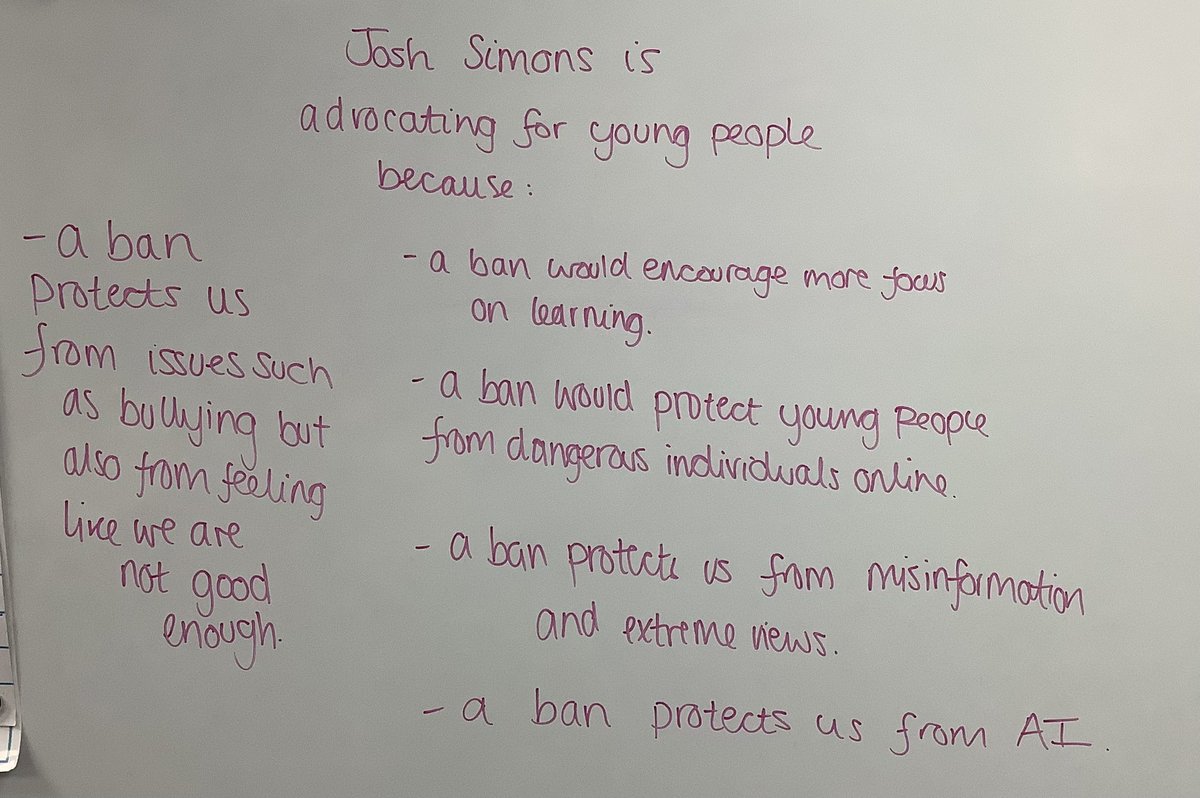 Josh Simons is
advocating for young people
because:
- a ban
protects us
from issues such
as bullying but
also from feeling
like we are
not good
enough.
- a ban would encourage more focus
on learning.
- a ban would protect young people
from dangerous individuals online.
- a ban protects us from misinformation
and extreme views.
- a ban protects us from AI.